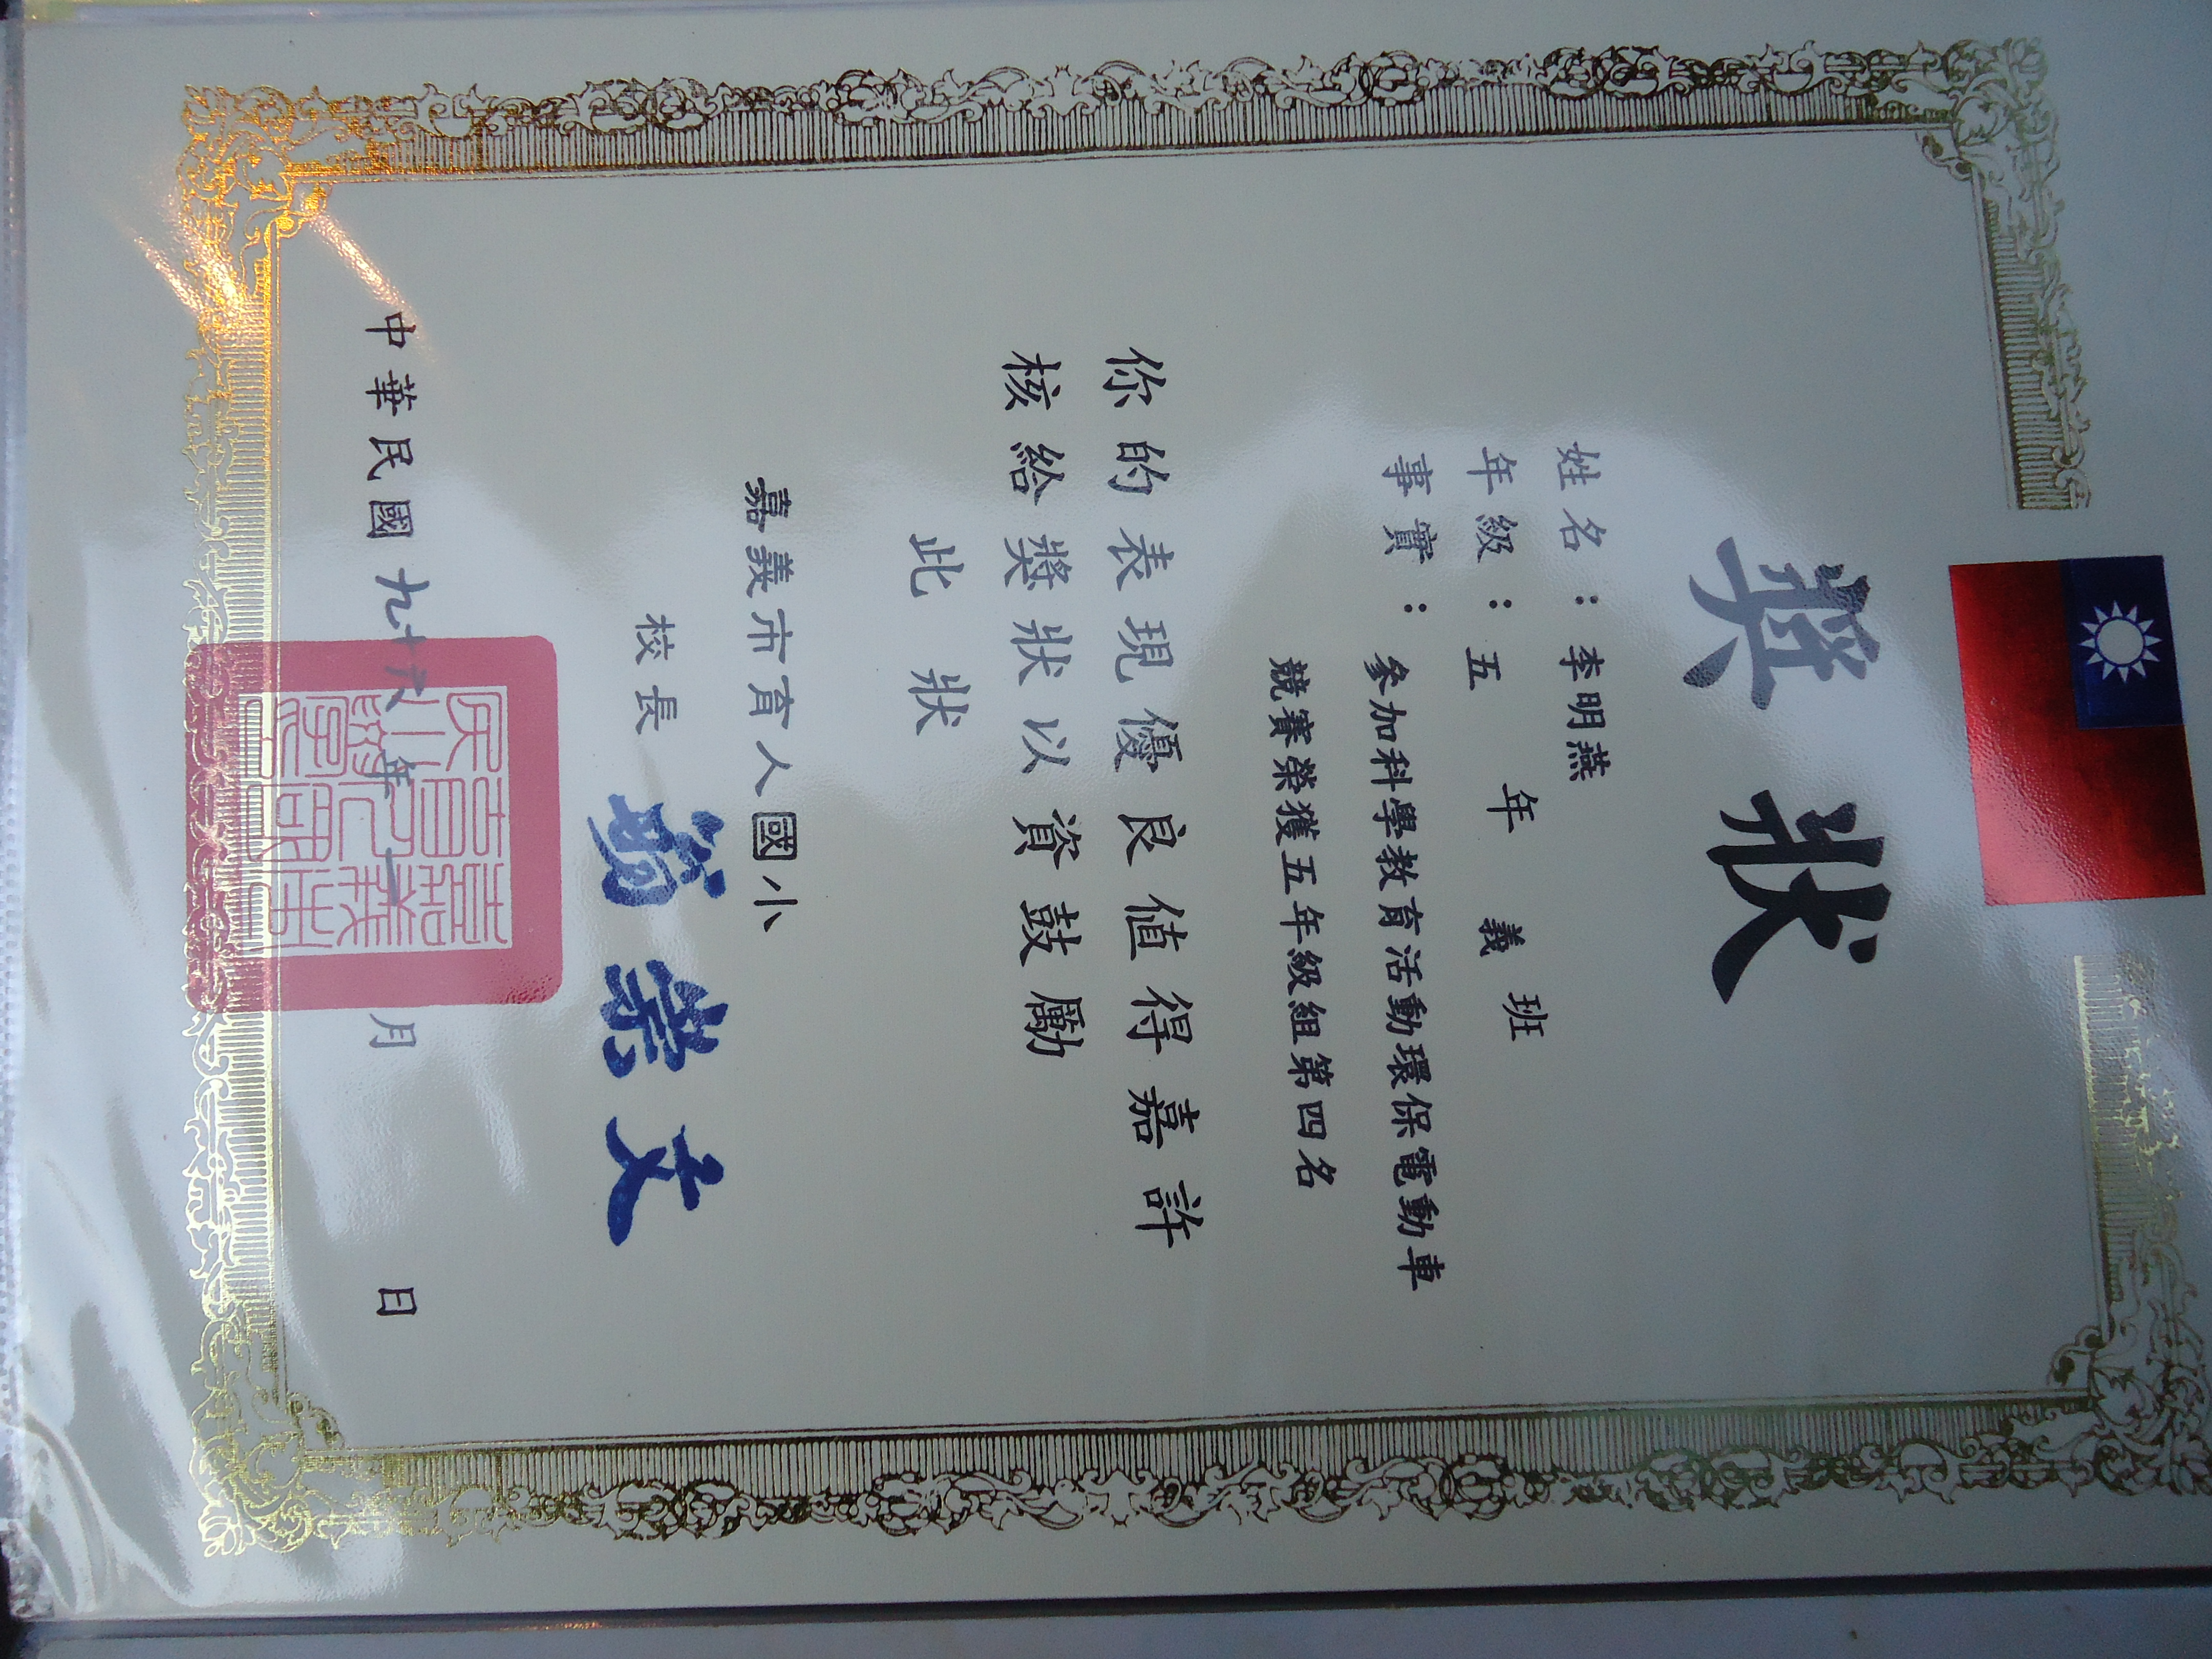 獎狀
姓名：李明燕
年級：五年義班
事實：參加科學教育活動環保電動車
競賽榮獲五年級組第四名
你的表現優良值得嘉許
核給獎狀以資鼓勵
此狀
嘉義市育人國小
校長
榮文
中華民國九十六年一月 日